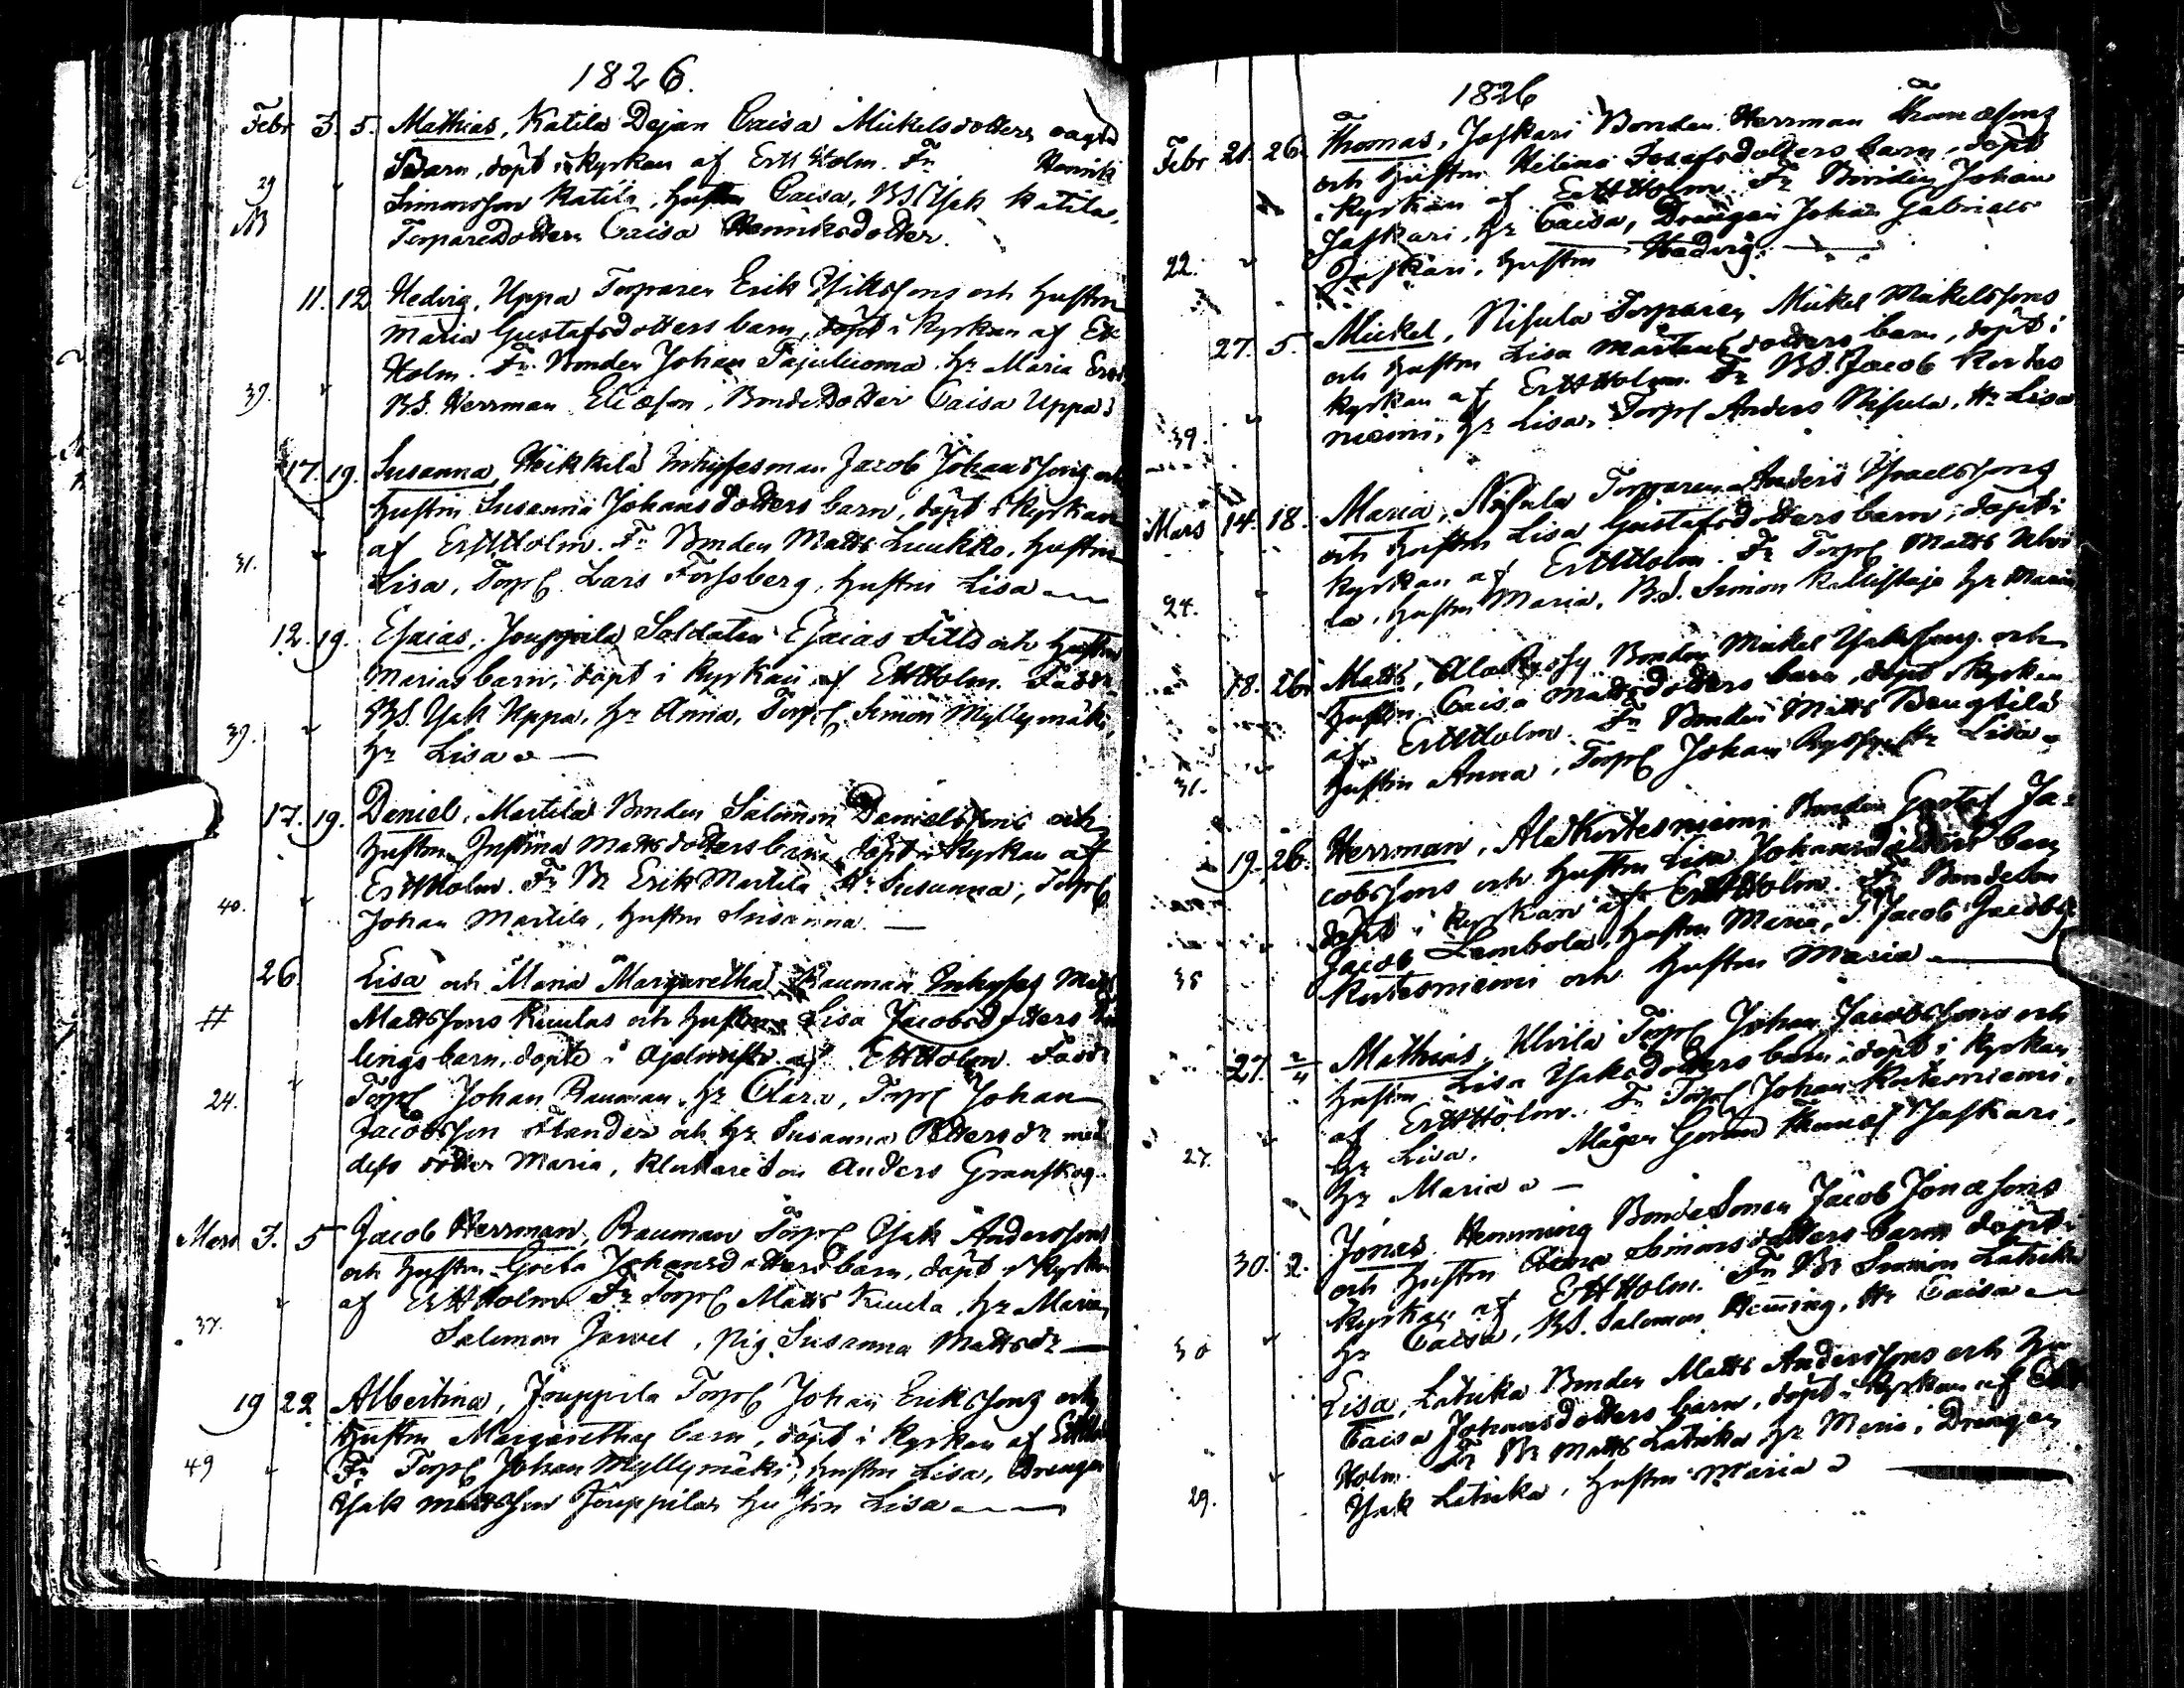 1826.
Febr 3. 5. Mathias, Katila Dejan Caisa Mickelsdotters oägta
Barn, döpt i kyrkan af ErHHolm. Fr Henrik
29 Simonsson Katila, hustru Caisa, BS Isak Katila,
Torparedottern Caisa Henriksdotter.
11. 12 Hedvig, Uppa Torparen Erik och hustru
Maria Gustafsdotters barn, döpt i kyrkan af
Holm. Fr Bonden Johan hr Maria
39. BS. Herrman Eliæson, Bondedotter Caisa Uppa
17. 19. Susanna, Heikkilä Inhysesman Jacob Johanssons och
hustru Susanna Johansdotters barn, döpt i kyrkan
af ErHHolm. Fr Bonden Matts Luukko, hustru
31. Lisa, Torp Lars Forssberg, hustru Lisa
12. 19. Esaias, Jouppila Soldaten Esaias och hustru
Marias barn, döpt i kyrkan af EHHolm. Fadd
39. BS. Isak Uppa, hr Anna, Torp Simon Myllymäki,
hr Lisa
17. 19. Daniel, Martila Bonden Salomon Danielssons och
hustru Justina Mattsdotters barn döpt i kyrkan af
ErHHolm. Fr Br Erik Martila Hr Susanna, Torp
40. Johan Martila, hustru Susanna.
26. Lisa och Maria Margaretha, Rauman Inhyses
# Mattssons Kuulas och hustru Lisa Jacobsdotters
lings barn, döpte i af EHHolm. Fadd
24. Torp Johan Rauman hr Clara, Torp Johan
Jacobsson och hr Susanna med
dess dotter Maria, Anders Granskog.
Mars 3. 5 Jacob Herrman, Rauman Torp Isak Anderssons
och hustru Greta Johansdotters barn, döpt i kyrkan
af ErHHolm Fr Torp Matts Kuula, hr Maria,
37. Salomon Pig Susanna Mattsdr
19 22 Albertina, Jouppila Torp Johan Erikssons och
hustru Margarethas barn, döpt i kyrkan af
49 Fr Torp Johan Myllymäki, hustru Lisa, Drengen
Isak Mattsson Jouppila hustru Lisa
1826
Febr 21. 26. Thomas, Jaskari Bonden Herrman Thomæsons
och hustru Helena Josefsdotters barn, döpt
i kyrkan af ErHHolm. Fr Bonden Johan
Jaskari, hr Caisa, Drengen Johan Gabriels
22. Jaskari, hustru Hedvig.
27. 5. Mickel, Nisula Torparen Mickel Mickelssons
och hustru Lisa Martensdotters barn, döpt i
kyrkan af ErHHolm. Fr BS. Jacob Kortes
39. niemi, hr Lisa, Torp Anders Nisula, Hr Lisa
Mars 14. 18. Maria, Nisula Torparen Anders Israelssons
och hustru Lisa Gustafsdotters barn, döpt i
kyrkan af ErHHolm. Fr Torp Matts Ulvi
24. la, hustru Maria, B.S. Simon hr Maria
18. 26. Matts, Ala Ryssy Bonden Mickel Isakssons och
hustru Caisa Mattsdotters barn, döpt i kyrkan
af ErHHolm. Fr Bonden Matts Bengtila
31. hustru Anna, Torp Johan Ryssy hr Lisa
19. 26. Herrman, Ala Kortesniemi Bonden Gustaf Ja-
cobssons och hustru Lisa Johansdotters barn
döpt i kyrkan af ErHHolm. Fr
Jacob hustru Maria, Jacob
35 Kortesniemi och hustru Maria
27. 2/4 Mathias, Ulvila Torp Johan Jacobssons och
hustru Lisa Isaksdotters barn döpt i kyrkan
af ErHHolm. Fr Torp Johan Kortesniemi,
27. hr Lisa. Mågen Jaskari,
hr Maria
30. 2. Jonas Hemming Bondesonen Jacob Jonæsons
och hustru Anna Simonsdotters barn döpt i
kyrkan af EHHolm. Fr Br Simon Latuka
30 hr Caisa, BS. Salomon Heming, Hr Caisa
Lisa, Latuka Bonden Matts Anderssons och hu
Caisa Johansdotters barn, döpt i kyrkan af
Holm. Fr Br Matts Latuka hr Maria, Drengen
29. Isak Latuka, hustru Maria